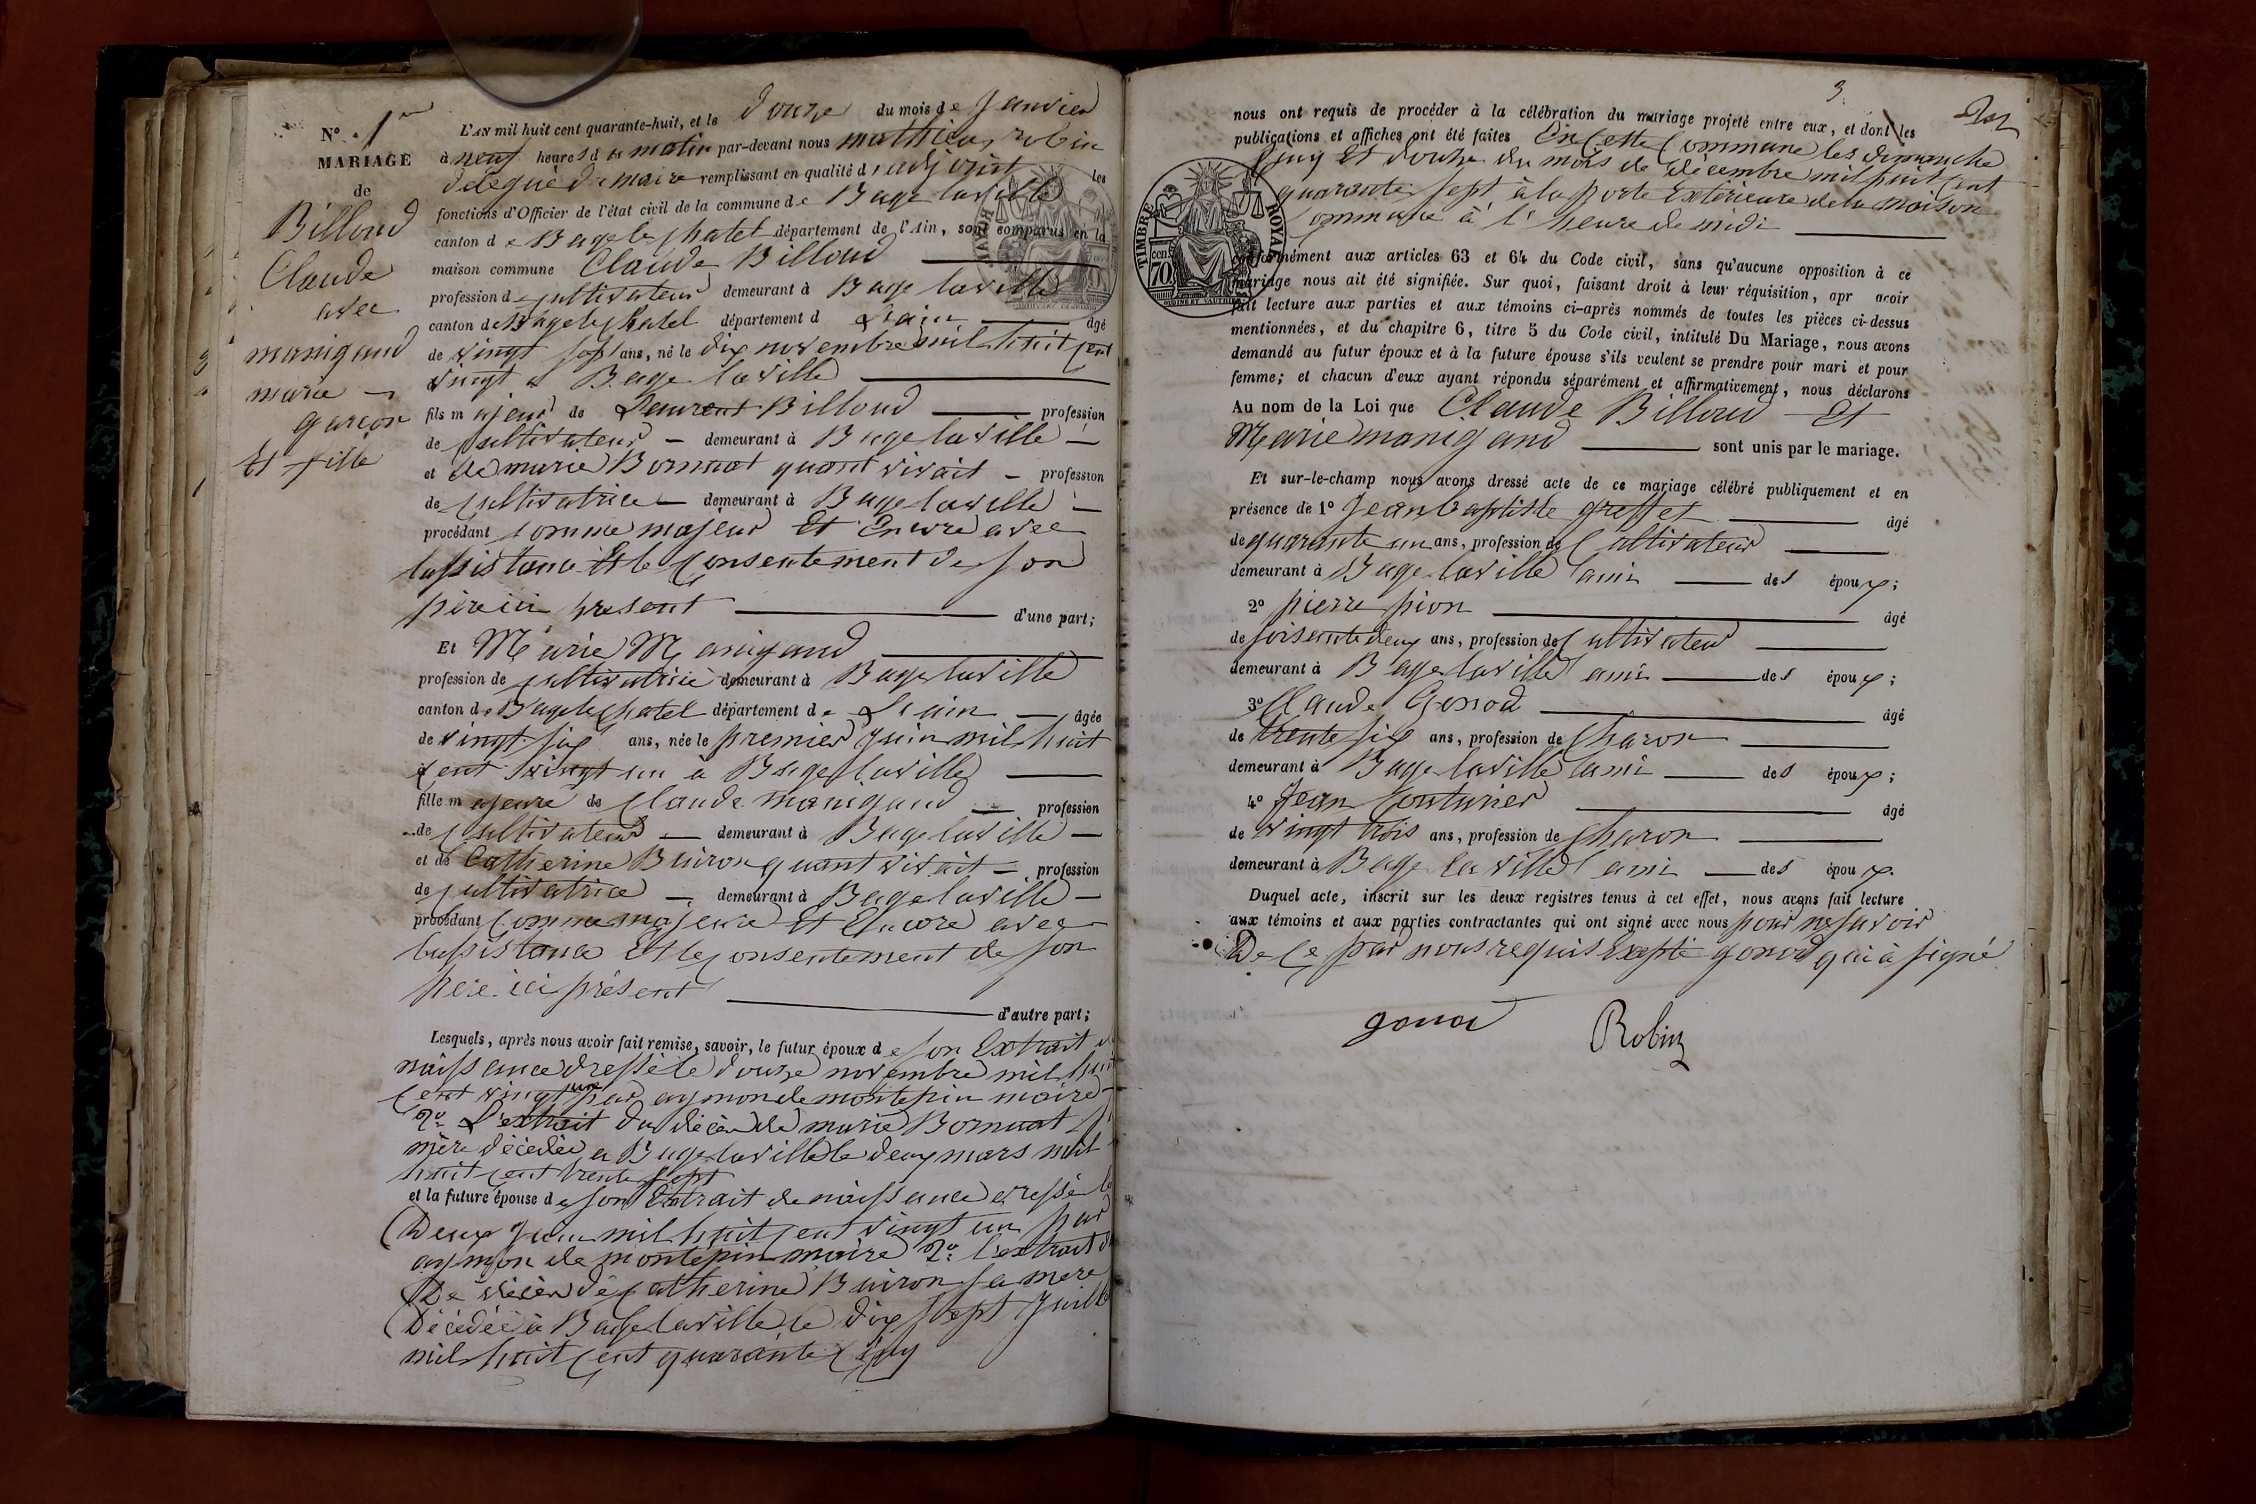 N° 1er
MARIAGE
de
Billoud
Claude
avec
manigand
marie
garçon
Et fille
L'AN mil huit cent quarante-huit, et le douze du mois de Janvier
à neuf heures du matin par-devant nous mathieu robin
délégué du maire remplissant en qualité d'adjoint les
fonctions d'Officier de l'état civil de la commune de Bage laville
canton de Bage le Chatel département de l'Ain, sont comparus en la
maison commune Claude Billoud
profession de cultivateur demeurant à Bage laville
canton de Bage le Chatel département d Lain âgé
de vingt sept ans, né le dix novembre mil huit cent
vingt à Bage laville
fils majeur de Laurent Billoud profession
de cultivateur demeurant à Bage laville
et de marie Bornuat quant vivait profession
de cultivatrice demeurant à Bage laville
procédant comme majeur Et Encore avec
lassistance Et le Consentement de son
père ici present d'une part;
Et Marie Manigand
profession de cultivatrice demeurant à Bage laville
canton de Bage le Chatel département de Lain âgée
de vingt six ans, née le premier Juin mil huit
cent vingt un à Bage laville
fille majeure de Claude manigand profession
de cultivateur demeurant à Bage laville
et de Catherine Buiron quant vivait profession
de cultivatrice demeurant à Bage laville
procédant Comme majeure Et Encore avec
lassistance Et le Consentement de son
père ici présent d'autre part;
Lesquels, après nous avoir fait remise, savoir, le futur époux de son Extrait de
naissance dressé le douze novembre mil huit
cent vingt par aymon de montepin maire
2° L'extrait du décès de marie Bornuat sa
mère décédée à Bage laville le deux mars mil
huit cent trente sept
et la future épouse de son Extrait de naissance dressé le
Deux Juin mil huit cent vingt un par
aymon de montepin maire 2° l'extrait
De décès de Catherine Buiron sa mere
Décédée à Bage laville le dix sept Juillet
mil huit cent quarante Cinq
3
nous ont requis de procéder à la célébration du mariage projeté entre eux, et dont les
publications et affiches ont été faites En Cette Commune les dimanche
Cinq Et douze du mois de décembre mil huit Cent
quarante sept à la porte Extérieure de la maison
Commune à l'heure de midi
TIMBRE ROYAL
70 cen.
conformément aux articles 63 et 64 du Code civil, sans qu'aucune opposition à ce
mariage nous ait été signifiée. Sur quoi, faisant droit à leur réquisition, apr avoir
fait lecture aux parties et aux témoins ci-après nommés de toutes les pièces ci-dessus
mentionnées, et du chapitre 6, titre 5 du Code civil, intitulé Du Mariage, nous avons
demandé au futur époux et à la future épouse s'ils veulent se prendre pour mari et pour
femme; et chacun d'eux ayant répondu séparément et affirmativement, nous déclarons
Au nom de la Loi que Claude Billoud Et
Marie manigand sont unis par le mariage.
Et sur-le-champ nous avons dressé acte de ce mariage célébré publiquement et en
présence de 1° Jean baptiste greffet âgé
de quarante un ans, profession de Cultivateur
demeurant à Bage laville ami des époux;
2° pierre pion âgé
de soisante deux ans, profession de Cultivateur
demeurant à Bage laville ami des époux;
3° Claude Gonod âgé
de trente six ans, profession de Charon
demeurant à Bage laville ami des époux;
4° Jean Couturier âgé
de vingt trois ans, profession de Charon
demeurant à Bage la ville ami des époux.
Duquel acte, inscrit sur les deux registres tenus à cet effet, nous avons fait lecture
aux témoins et aux parties contractantes qui ont signé avec nous pour ne savoir
De Ce par nous requis Excepté gonod qui à signé
gonod Robin